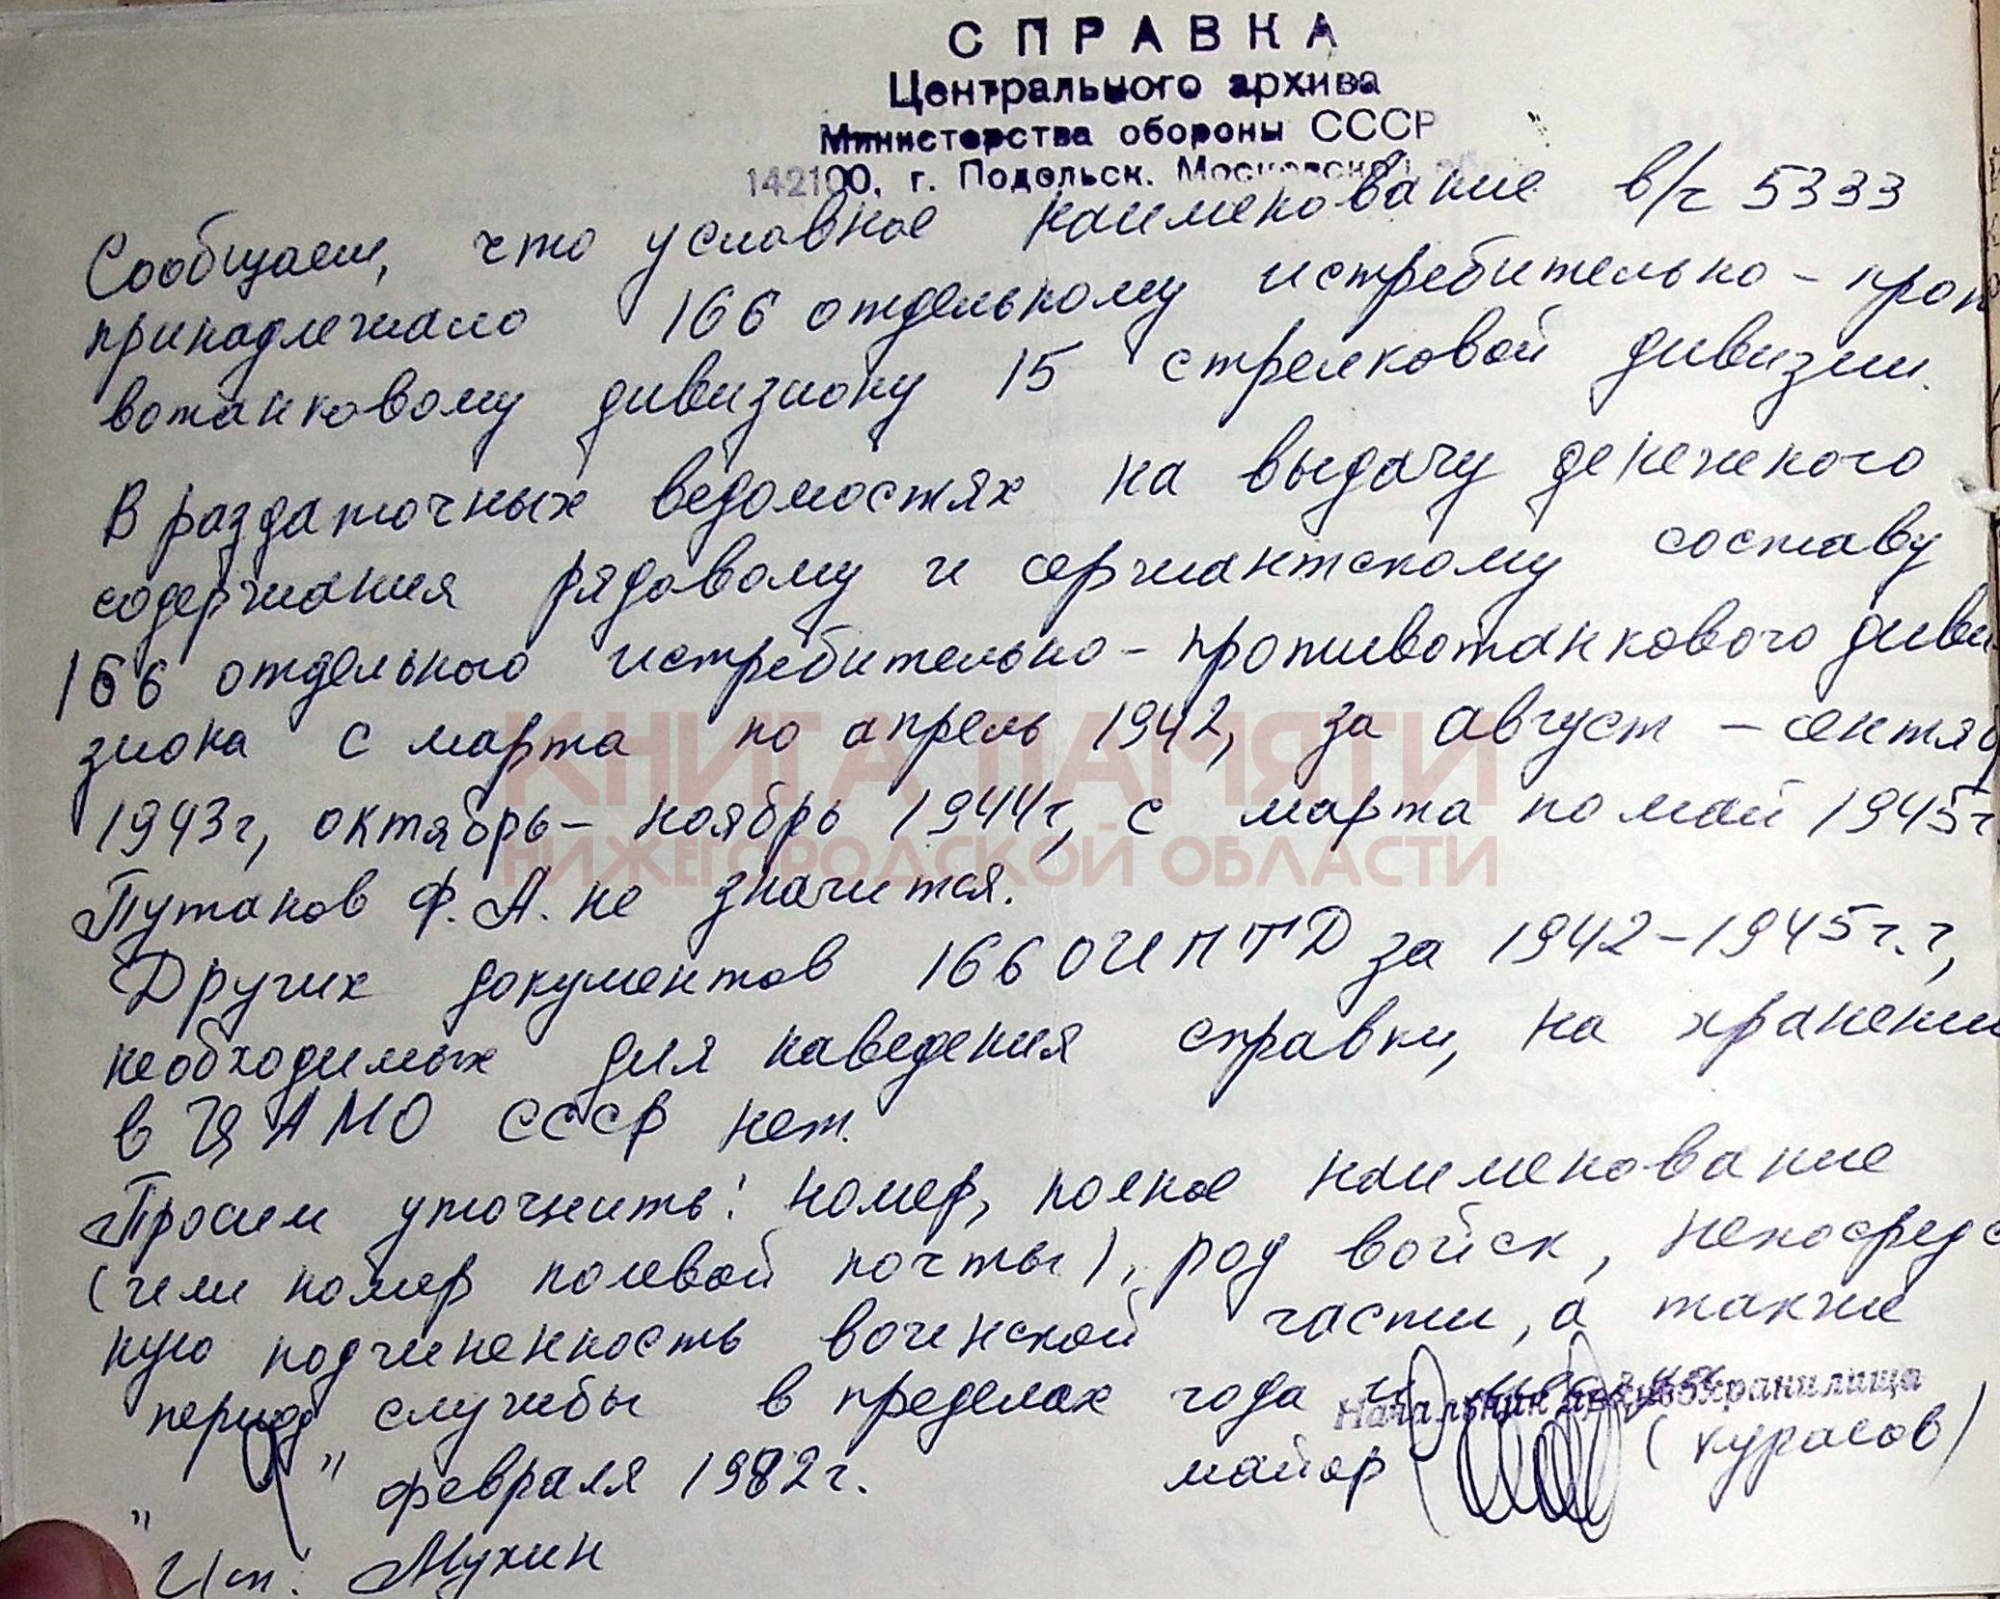 СПРАВКА
Центрального архива
Министерства обороны СССР
142100, г. Подольск, Московской
Сообщаем, что условное наименование в/ч 5333
принадлежало 166 отдельному истребительно-проти
вотанковому дивизиону 15 стрелковой дивизии.
В раздаточных ведомостях на выдачу денежного
содержания рядовому и сержантскому составу
166 отдельного истребительно-противотанкового диви
зиона с марта по апрель 1942, за август - сентяб
КНИГА ПАМЯТИ
1943г, октябрь - ноябрь 1944г, с марта по май 1945г
НИЖЕГОРОДСКОЙ ОБЛАСТИ
Путанов Ф.А. не значится.
Других документов 166 ОИПТД за 1942-1945г.г,
необходимых для наведения справки, на хранении
в ЦАМО СССР нет.
Просим уточнить: номер, полное наименование
(или номер полевой почты), род войск, непосредс
ную подчиненность воинской части, а также
период службы в пределах года и
Начальник архивохранилища
майор (Курасов)
" " февраля 1982г.
Исп: Мухин